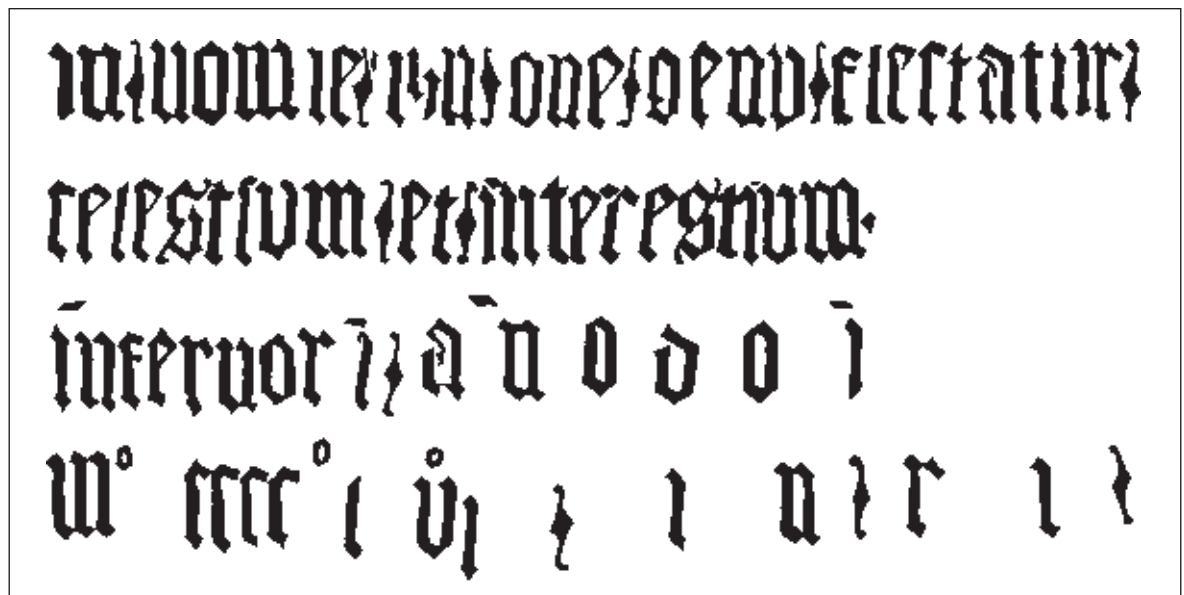 in nomie ihu one genu flectatur
celestium et interestium.
īnfernor ī āno do ī
mº ccccº l vº i i n r i